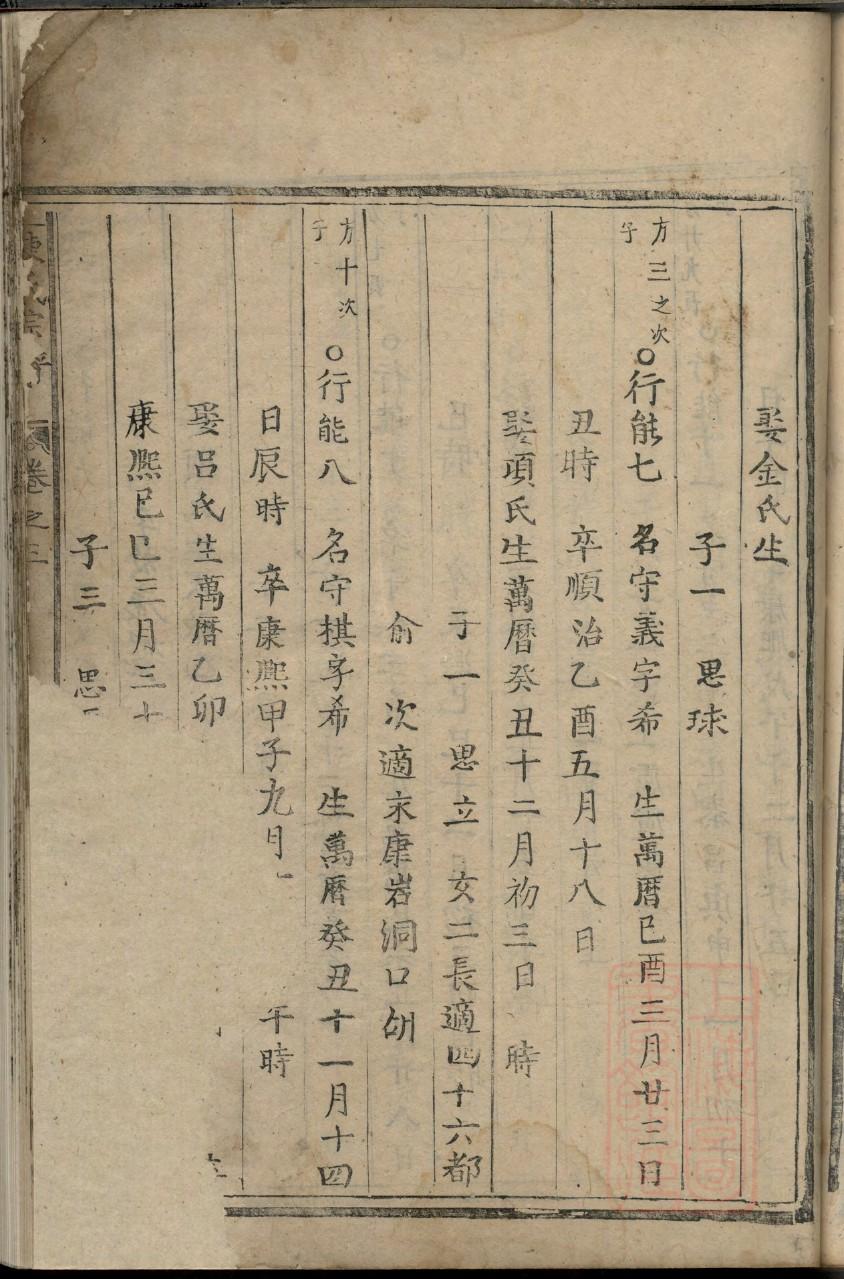 娶金氏生
子一 思球
方三之次子
○行能七 名守義字希 生萬曆己酉三月廿三日
丑時 卒順治乙酉五月十八日
娶項氏生萬曆癸丑十二月初三日 時
子一 思立 女二長適四十六都
俞 次適永康岩洞口胡
方十次子
○行能八 名守棋字希 生萬曆癸丑十一月十四
日辰時 卒康熙甲子九月 午時
娶呂氏生萬曆乙卯
康熙己巳三月三十
子三 思
宗譜 卷之三